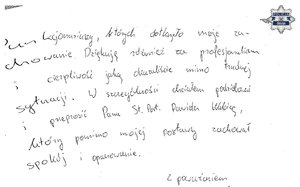 funkcjonariuszy, których dotknęło moje za-
chowanie. Dziękuję również za profesjonalizm
i cierpliwość jaką okazaliście mimo trudnej
sytuacji. W szczególności chciałem podziękować
i przeprosić Pana St. Post. Dawida
który pomimo mojej postawy zachował
spokój i opanowanie.
Z poważaniem